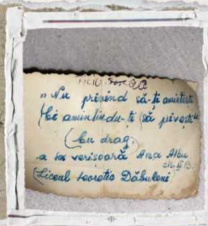 „Nu privind să-ți amintești
Ci amintindu-ți să privești"
Cu drag,
a ta verișoară Ana Albu
Liceul teoretic Dăbuleni